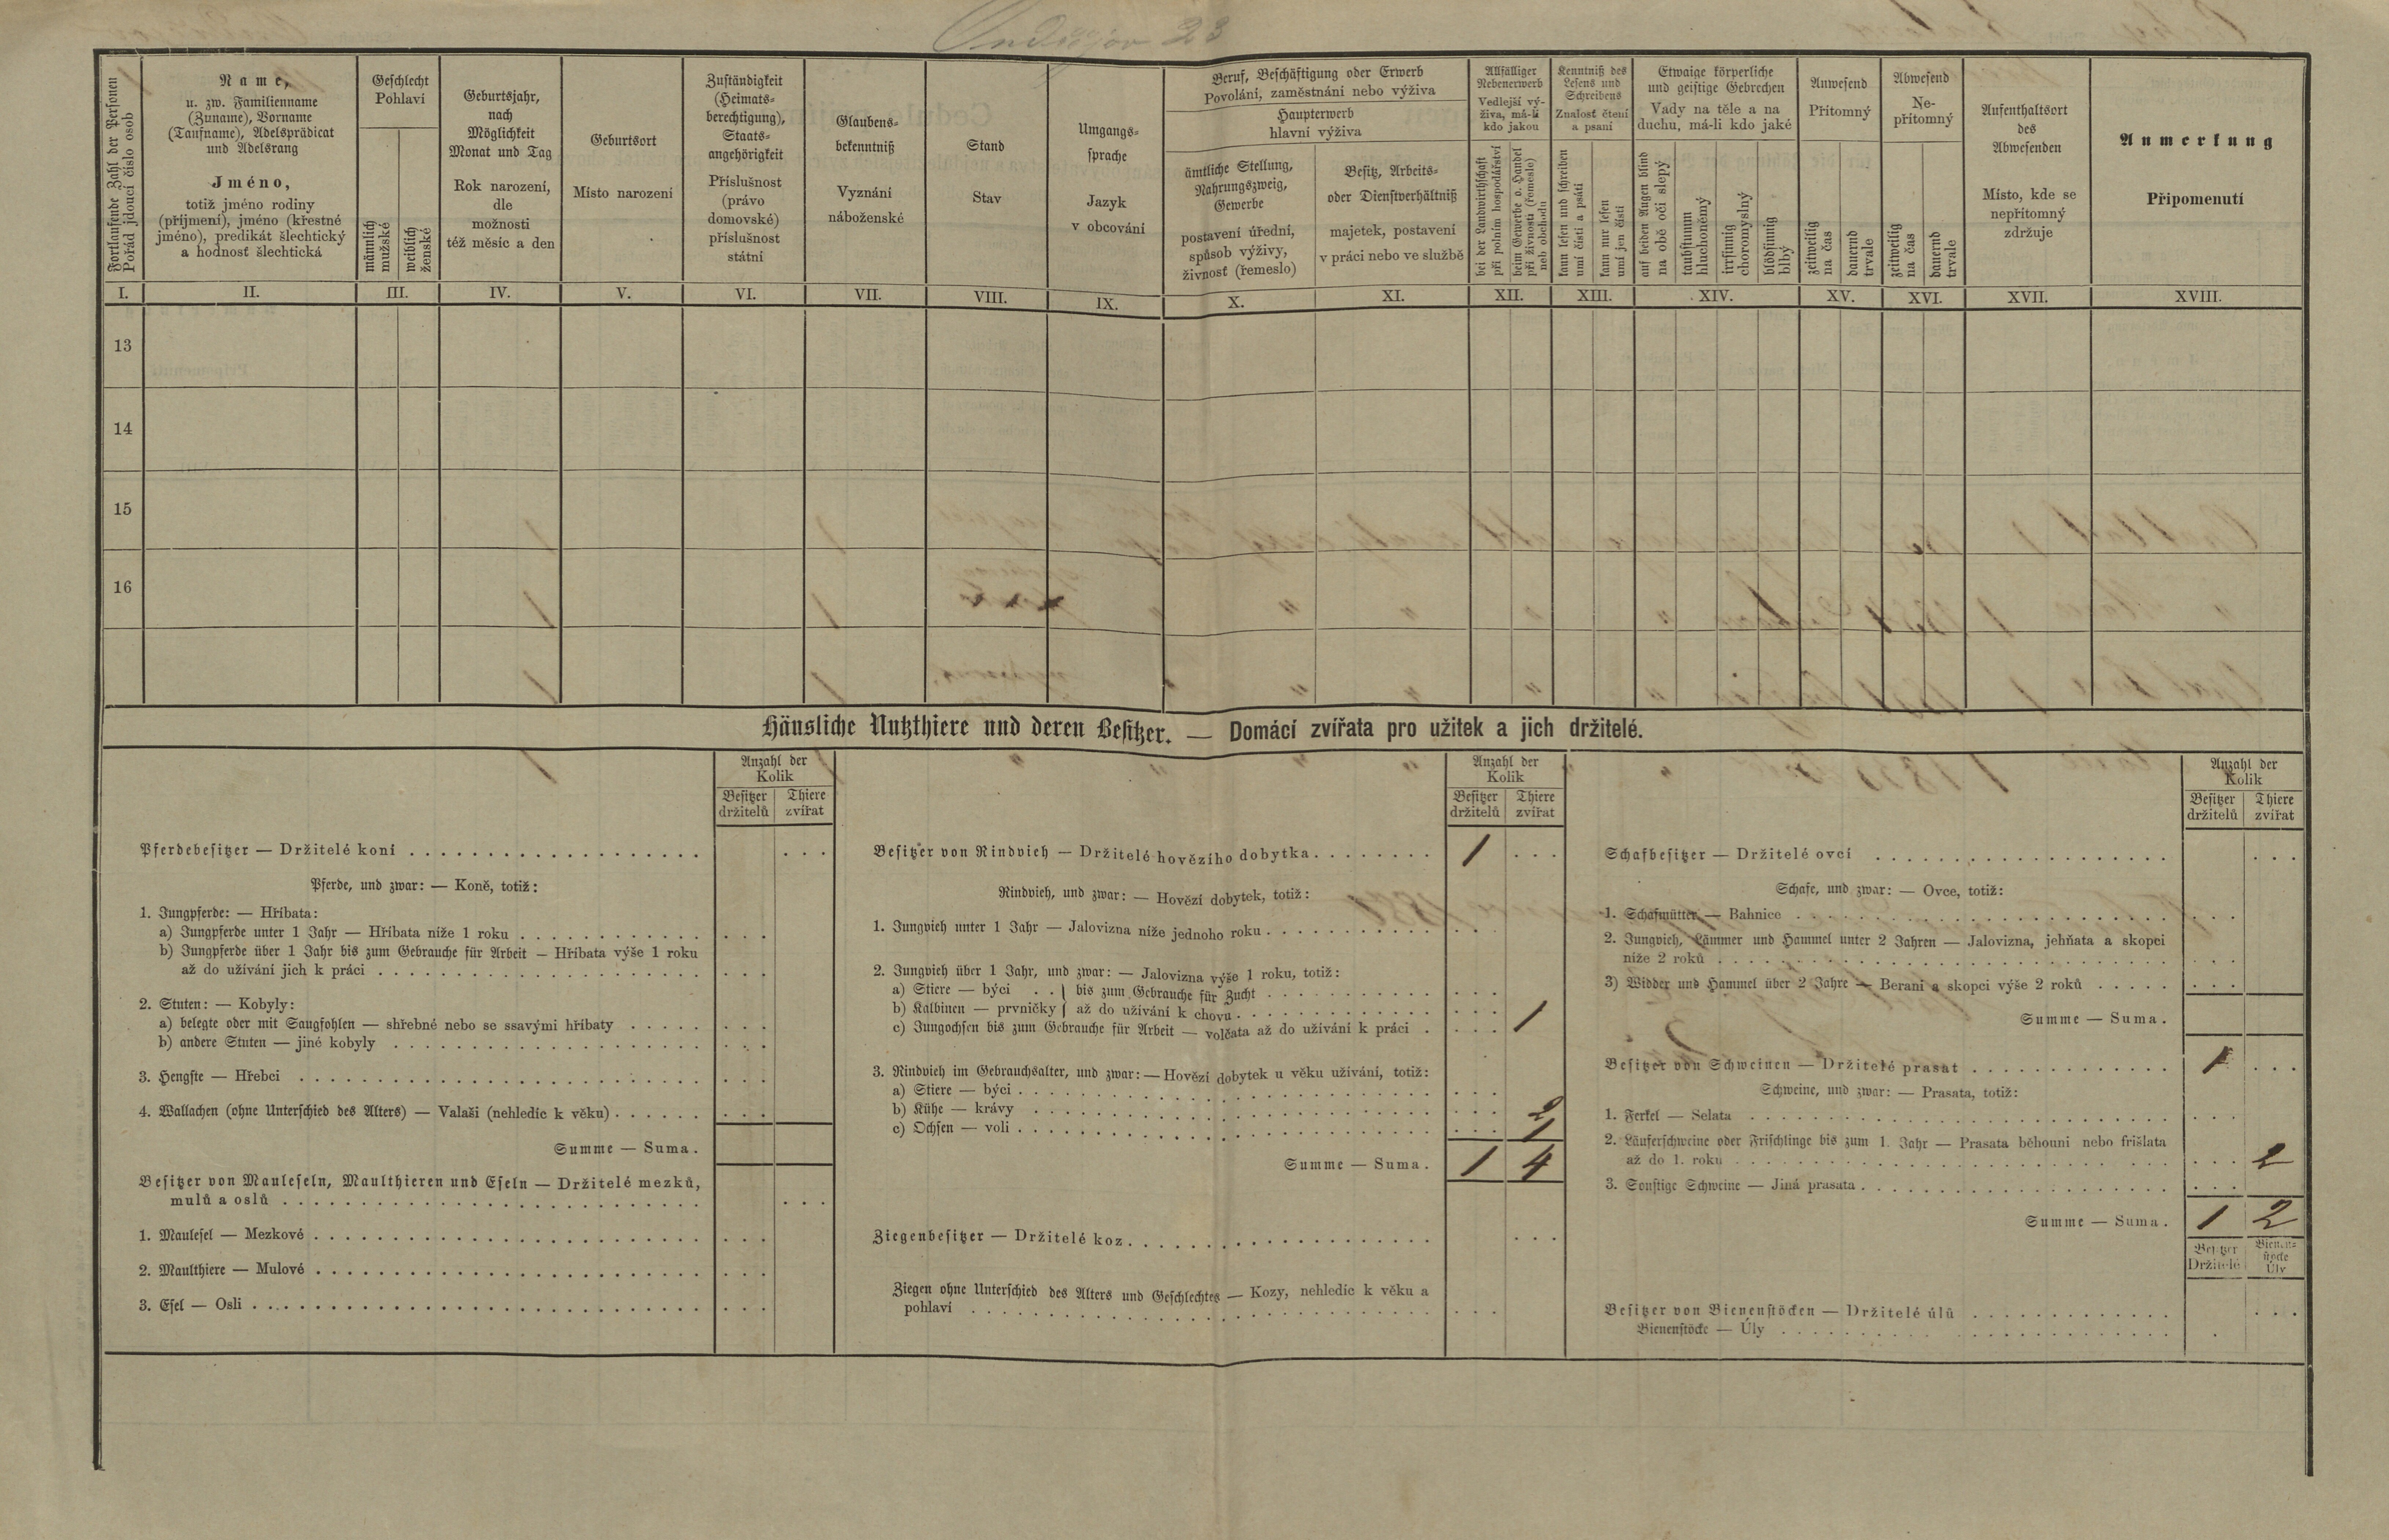 Ondřejov 23
Fortlaufende Zahl der Personen
Pořád jdoucí číslo osob
Name,
u. zw. Familienname
(Zuname), Vorname
(Taufname), Adelsprädicat
und Adelsrang
Jméno,
totiž jméno rodiny
(příjmení), jméno (křestné
jméno), predikát šlechtický
a hodnosť šlechtická
Geschlecht
Pohlaví
männlich
mužské
weiblich
ženské
Geburtsjahr,
nach
Möglichkeit
Monat und Tag
Rok narození,
dle
možnosti
též měsíc a den
Geburtsort
Místo narození
Zuständigkeit
(Heimats-
berechtigung),
Staats-
angehörigkeit
Příslušnost
(právo
domovské)
příslušnost
státní
Glaubens-
bekenntniß
Vyznání
náboženské
Stand
Stav
Umgangs-
sprache
Jazyk
v obcování
Beruf, Beschäftigung oder Erwerb
Povolání, zaměstnání nebo výživa
Haupterwerb
hlavní výživa
ämtliche Stellung,
Nahrungszweig,
Gewerbe
postavení úřední,
spůsob výživy,
živnosť (řemeslo)
Besitz, Arbeits-
oder Dienstverhältniß
majetek, postavení
v práci nebo ve službě
Allfälliger
Nebenerwerb
Vedlejší vý-
živa, má-li
kdo jakou
bei der Landwirthschaft
při polním hospodářství
beim Gewerbe o. Handel
při živnosti (řemeslo)
neb obchodu
Kenntniß des
Lesens und
Schreibens
Znalosť čtení
a psaní
kann lesen und schreiben
umí čísti a psáti
kann nur lesen
umí jen čísti
Etwaige körperliche
und geistige Gebrechen
Vady na těle a na
duchu, má-li kdo jaké
auf beiden Augen blind
na obě oči slepý
taubstumm
hluchoněmý
irrsinnig
choromyslný
blödsinnig
blbý
Anwesend
Přítomný
zeitweilig
na čas
dauernd
trvale
Abwesend
Ne-
přítomný
zeitweilig
na čas
dauernd
trvale
Aufenthaltsort
des
Abwesenden
Místo, kde se
nepřítomný
zdržuje
Anmerkung
Připomenutí
I. II. III. IV. V. VI. VII. VIII. IX. X. XI. XII. XIII. XIV. XV. XVI. XVII. XVIII.
13
14
15
16
Häusliche Nutzthiere und deren Besitzer. — Domácí zvířata pro užitek a jich držitelé.
Anzahl der
Kolik
Besitzer Thiere
držitelů zvířat
Pferdebesitzer — Držitelé koní
Pferde, und zwar: — Koně, totiž:
1. Jungpferde: — Hříbata:
a) Jungpferde unter 1 Jahr — Hříbata níže 1 roku
b) Jungpferde über 1 Jahr bis zum Gebrauche für Arbeit — Hříbata výše 1 roku
až do užívání jich k práci
2. Stuten: — Kobyly:
a) belegte oder mit Saugfohlen — shřebné nebo se ssavými hříbaty
b) andere Stuten — jiné kobyly
3. Hengste — Hřebci
4. Wallachen (ohne Unterschied des Alters) — Valaši (nehledíc k věku)
Summe — Suma.
Besitzer von Mauleseln, Maulthieren und Eseln — Držitelé mezků,
mulů a oslů
1. Maulesel — Mezkové
2. Maulthiere — Mulové
3. Esel — Osli
Anzahl der
Kolik
Besitzer Thiere
držitelů zvířat
Besitzer von Rindvieh — Držitelé hovězího dobytka 1
Rindvieh, und zwar: — Hovězí dobytek, totiž:
1. Jungvieh unter 1 Jahr — Jalovizna níže jednoho roku
2. Jungvieh über 1 Jahr, und zwar: — Jalovizna výše 1 roku, totiž:
a) Stiere — býci } bis zum Gebrauche für Zucht
b) Kalbinen — prvničky } až do užívání k chovu
c) Jungochsen bis zum Gebrauche für Arbeit — volčata až do užívání k práci 1
3. Rindvieh im Gebrauchsalter, und zwar: — Hovězí dobytek u věku užívání, totiž:
a) Stiere — býci
b) Kühe — krávy 2
c) Ochsen — voli 1
Summe — Suma. 1 4
Ziegenbesitzer — Držitelé koz
Ziegen ohne Unterschied des Alters und Geschlechtes — Kozy, nehledíc k věku a
pohlaví
Anzahl der
Kolik
Besitzer Thiere
držitelů zvířat
Schafbesitzer — Držitelé ovcí
Schafe, und zwar: — Ovce, totiž:
1. Schafmütter — Bahnice
2. Jungvieh, Lämmer und Hammel unter 2 Jahren — Jalovizna, jehňata a skopci
níže 2 roků
3) Widder und Hammel über 2 Jahre — Berani a skopci výše 2 roků
Summe — Suma.
Besitzer von Schweinen — Držitelé prasat 1
Schweine, und zwar: — Prasata, totiž:
1. Ferkel — Selata
2. Läuferschweine oder Frischlinge bis zum 1. Jahr — Prasata běhouni nebo frišlata
až do 1. roku 2
3. Sonstige Schweine — Jiná prasata
Summe — Suma. 1 2
Besitzer Bienen-
stöcke
Držitelé Úly
Besitzer von Bienenstöcken — Držitelé úlů
Bienenstöcke — Úly